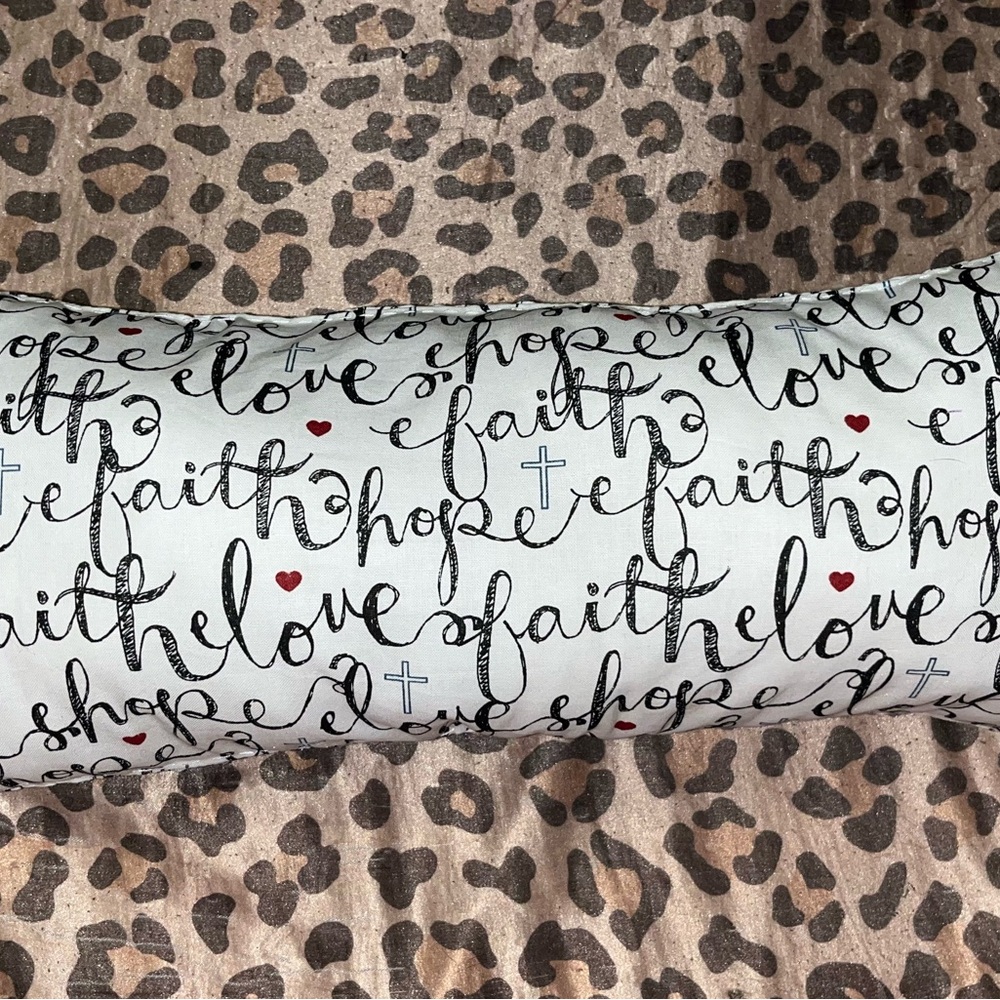 hope love hope love
faith faith
faith hope faith hop
faith love faith love
hope love hope love